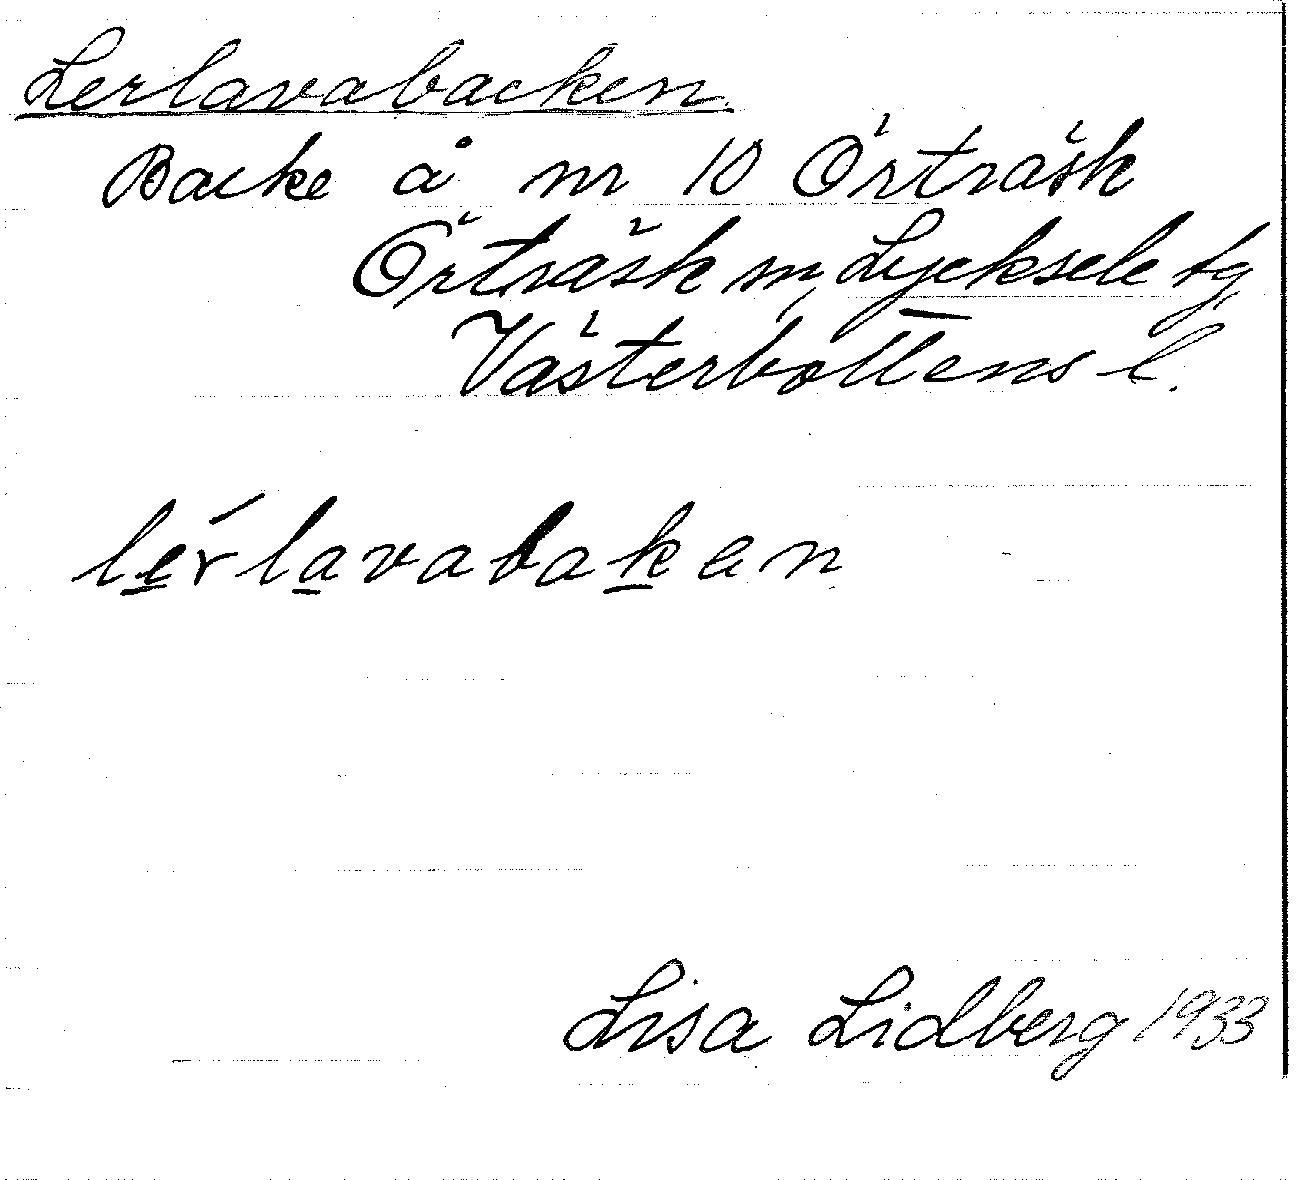 Lerlavabacken.
Backe å nr 10 Örträsk
Örträsk sn, Lycksele tg,
Västerbottens l.
lérlavabaken
Lisa Lidberg 1933